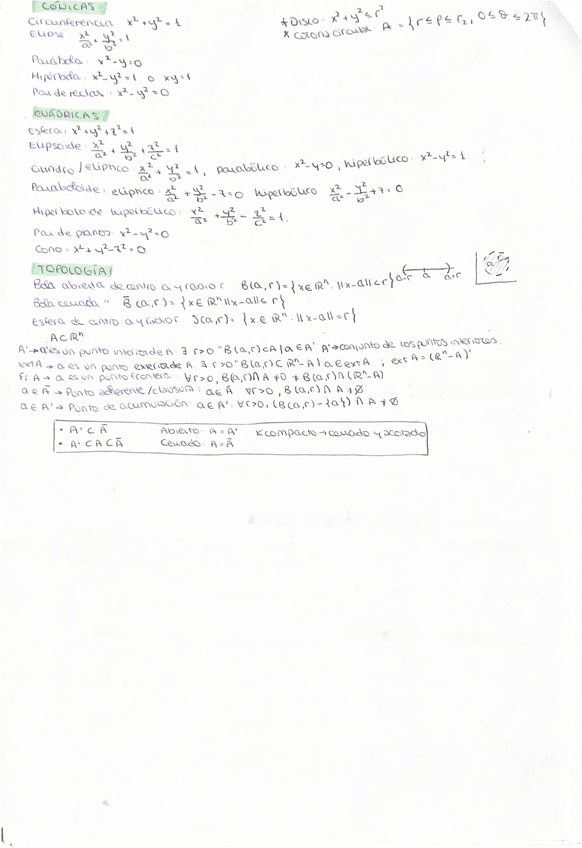 CÓNICAS
Circunferencia x²+y²=1
Elipse x²/a² + y²/b² = 1
Parábola: x²-y=0
Hipérbola: x²-y²=1 o xy=1
Par de rectas: x²-y²=0
* Disco: x²+y²≤r²
* Corona circular A = {r≤ρ≤r₂, 0≤θ≤2π}
CUÁDRICAS
Esfera: x²+y²+z²=1
Elipsoide: x²/a² + y²/b² + z²/c² = 1
Cilindro/elíptico: x²/a² + y²/b² = 1, parabólico: x²-y=0, hiperbólico: x²-y²=1
Paraboloide: elíptico: x²/a² + y²/b² - z=0 hiperbólico x²/a² - y²/b² + z=0
Hiperboloide hiperbólico: x²/a² + y²/b² - z²/c² = 1.
Par de planos: x²-y²=0
Cono: x²+y²-z²=0
TOPOLOGÍA
Bola abierta de centro a y radio r B(a,r)={x∈ℝⁿ: ||x-a||<r} a-r a a+r
Bola cerrada " B̄(a,r)={x∈ℝⁿ ||x-a||≤r}
Esfera de centro a y radio r S(a,r)={x∈ℝⁿ: ||x-a||=r}
A⊂ℝⁿ
A°→ a es un punto interior de A ∃ r>0 " B(a,r)⊂A / a∈A° A°→conjunto de los puntos interiores
ext A → a es un punto exterior de A ∃ r>0 " B(a,r)⊂ℝⁿ-A / a∈ext A ; ext A=(ℝⁿ-A)°
Fr A → a es un punto frontera: ∀r>0, B(a,r)∩A≠∅≠B(a,r)∩(ℝⁿ-A)
a∈Ā → Punto adherente/clausura: a∈Ā ∀r>0, B(a,r)∩A≠∅
a∈A' → Punto de acumulación: a∈A': ∀r>0, (B(a,r)-{a})∩A≠∅
• A'⊂Ā Abierto: A=A° K compacto→cerrado y acotado
• A°⊂A⊂Ā Cerrado: A=Ā